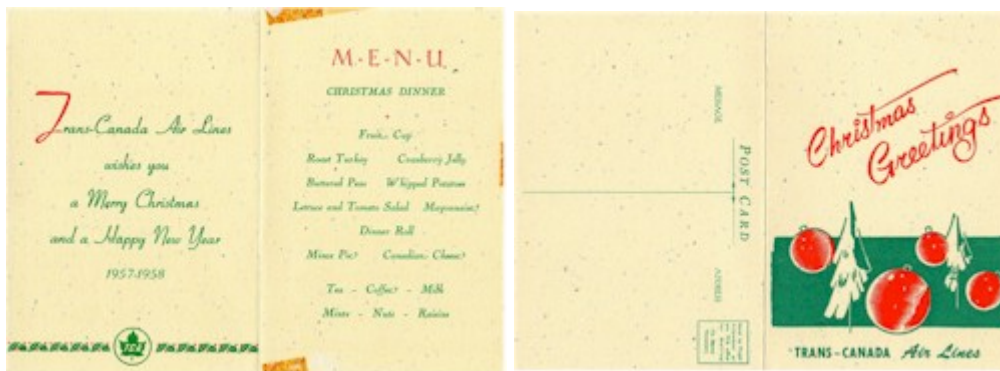 Trans-Canada Air Lines
wishes you
a Merry Christmas
and a Happy New Year
1957-1958
TCA
M·E·N·U
CHRISTMAS DINNER
Fruit Cup
Roast Turkey Cranberry Jelly
Buttered Peas Whipped Potatoes
Lettuce and Tomato Salad Mayonnaise
Dinner Roll
Mince Pie Canadian Cheese
Tea - Coffee - Milk
Mints - Nuts - Raisins
MESSAGE
POST CARD
ADDRESS
Christmas
Greetings
TRANS-CANADA Air Lines